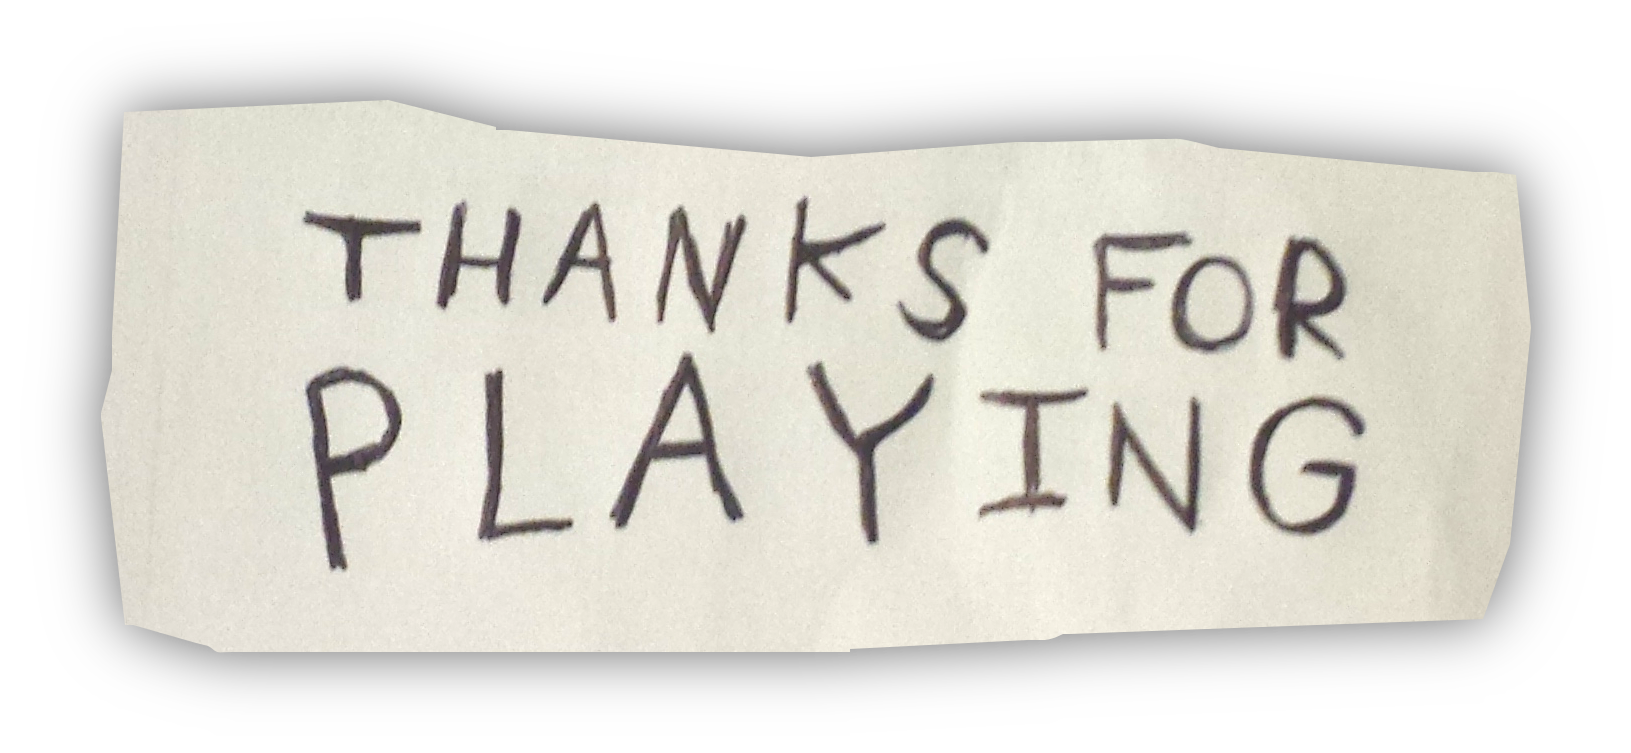 THANKS FOR
PLAYING